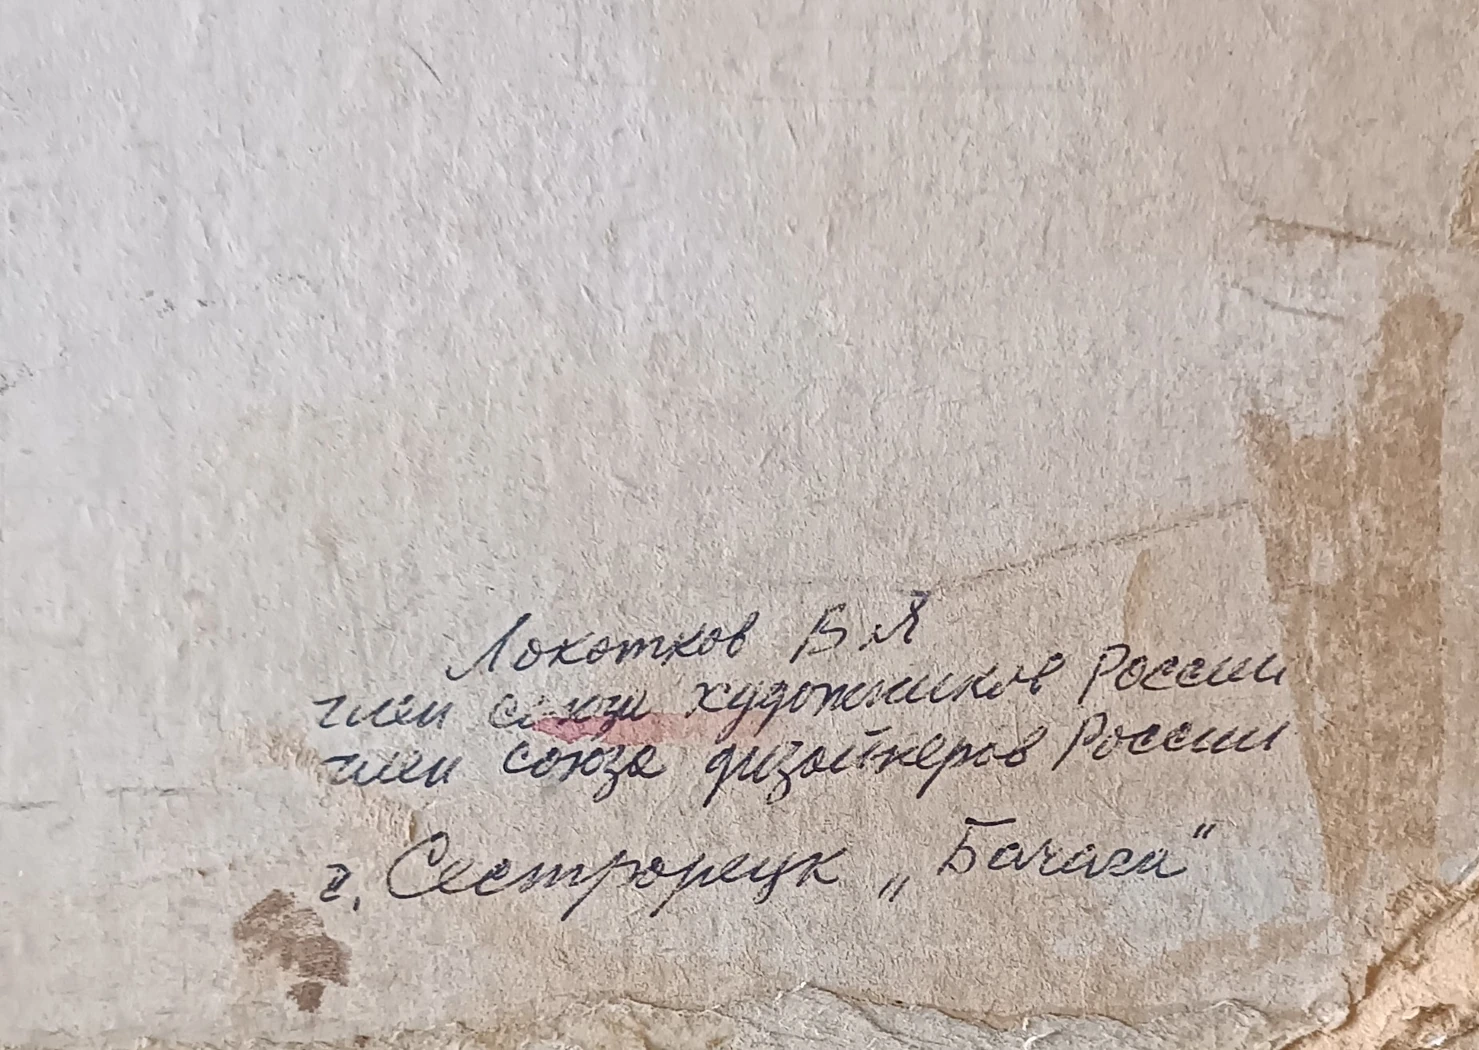 Локотков В.Я
член союза художников России
член союза дизайнеров России
г. Сестрорецк